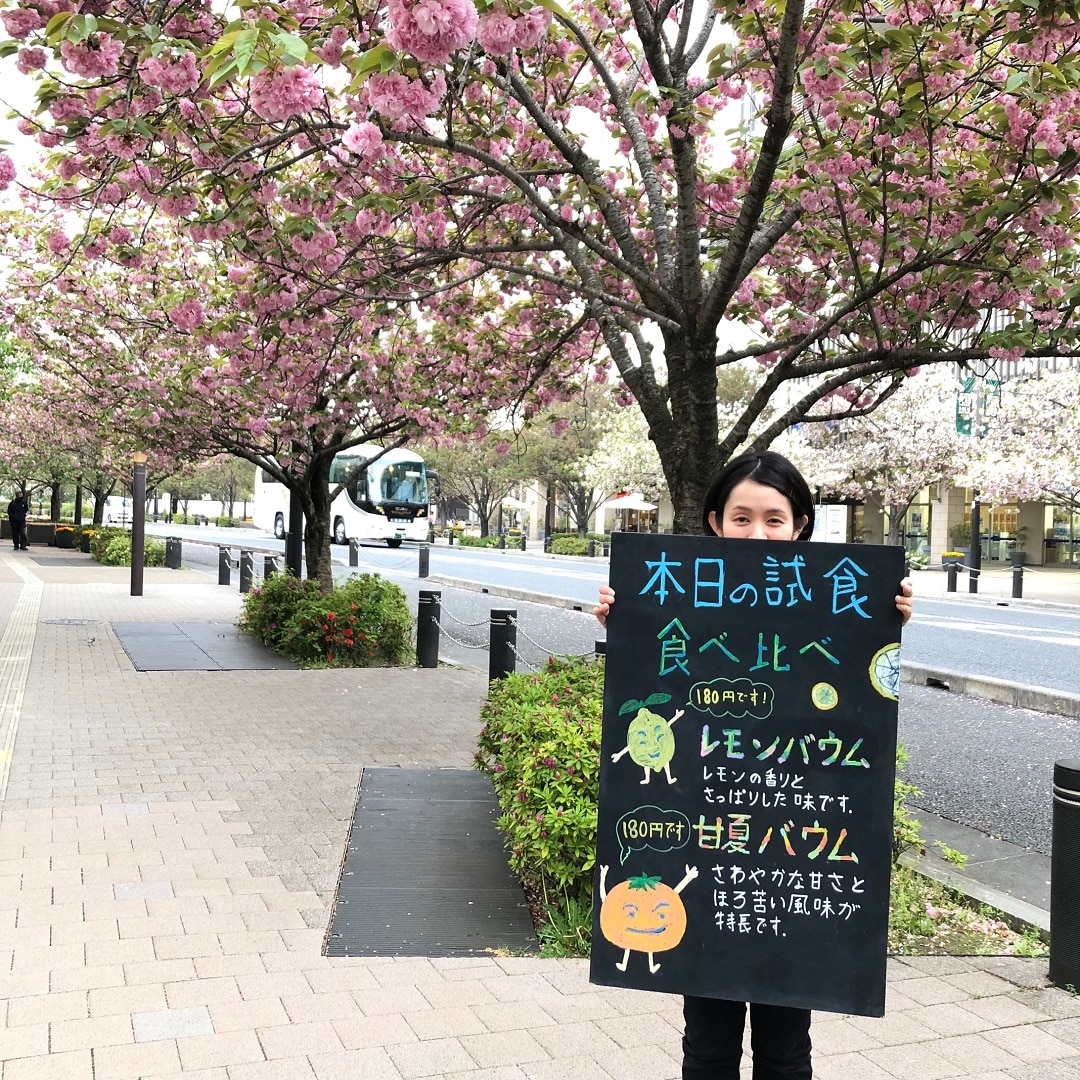 本日の試食
食べ比べ
180円です!
レモンバウム
レモンの香りと
さっぱりした味です。
180円です
甘夏バウム
さわやかな甘さと
ほろ苦い風味が
特長です。